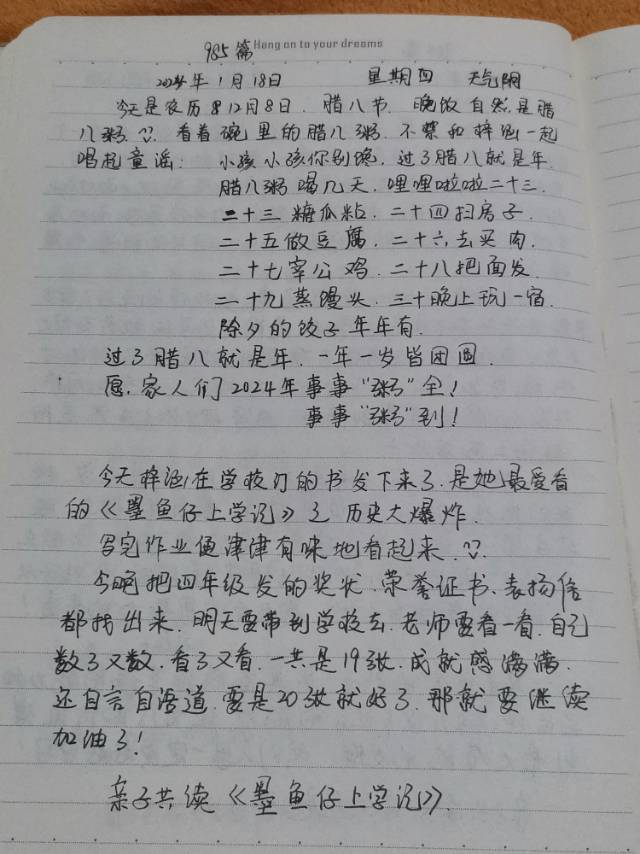 985篇 Hang on to your dreams
2024年1月18日 星期四 天气阴
今天是农历12月8日.腊八节.晚饭自然是腊
八粥.看着碗里的腊八粥.不禁和梓涵一起
唱起童谣:小孩小孩你别馋,过了腊八就是年.
腊八粥喝几天.哩哩啦啦二十三.
二十三糖瓜粘.二十四扫房子.
二十五做豆腐.二十六去买肉.
二十七宰公鸡.二十八把面发.
二十九蒸馒头.三十晚上玩一宿.
除夕的饺子年年有.
过了腊八就是年.一年一岁皆团圆.
愿.家人们2024年事事“粥”全!
事事“粥”到!
今天梓涵在学校订的书发下来了.是她最爱看
的《墨鱼仔上学记》之历史大爆炸.
写完作业便津津有味地看起来.
今晚把四年级发的奖状.荣誉证书、表扬信
都找出来.明天要带到学校去.老师要看一看.自己
数了又数.看了又看.一共是19张.成就感满满.
还自言自语道.要是20张就好了.那就要继续
加油了!
亲子共读《墨鱼仔上学记》.